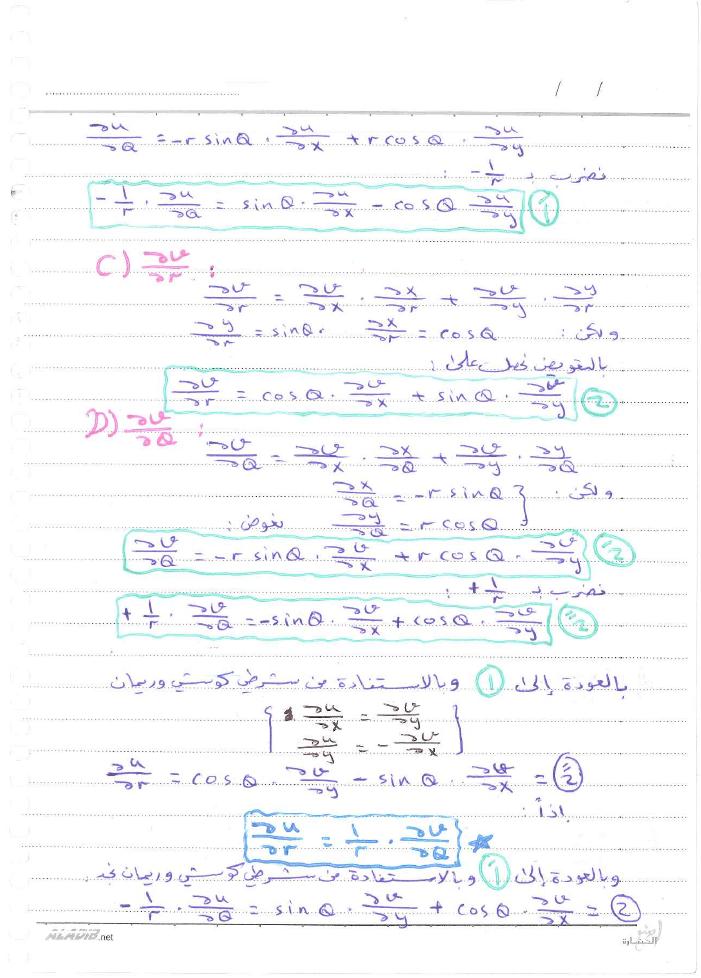 / /
∂u/∂Q = -r sinQ · ∂u/∂x + r cosQ · ∂u/∂y
نضرب بـ -1/r :
-1/r · ∂u/∂Q = sinQ · ∂u/∂x - cosQ ∂u/∂y (1̋)
C) ∂v/∂r :
∂v/∂r = ∂v/∂x · ∂x/∂r + ∂v/∂y · ∂y/∂r
ولكن : ∂x/∂r = cosQ ∂y/∂r = sinQ ·
بالتعويض نحصل على :
∂v/∂r = cosQ · ∂v/∂x + sinQ · ∂v/∂y (2)
D) ∂v/∂Q :
∂v/∂Q = ∂v/∂x · ∂x/∂Q + ∂v/∂y · ∂y/∂Q
ولكن : ∂x/∂Q = -r sinQ }
∂y/∂Q = r cosQ } نعوض :
∂v/∂Q = -r sinQ · ∂v/∂x + r cosQ · ∂v/∂y (2̋)
نضرب بـ +1/r :
+1/r · ∂v/∂Q = -sinQ · ∂v/∂x + cosQ · ∂v/∂y (2̋)
بالعودة إلى (1) وبالاستفادة من شرطي كوشي وريمان
[ ∂u/∂x = ∂v/∂y
∂u/∂y = - ∂v/∂x ]
∂u/∂r = cosQ · ∂v/∂y - sinQ · ∂v/∂x = (2̋)
إذاً :
∂u/∂r = 1/r · ∂v/∂Q ★
وبالعودة إلى (1̋) وبالاستفادة من شرطي كوشي وريمان نجد
-1/r · ∂u/∂Q = sinQ · ∂v/∂y + cosQ · ∂v/∂x = (2)
ALADIB.net
الحضارة